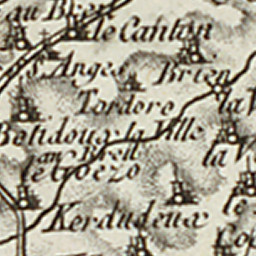 au Bren
de Canton
s. Anges
Brien
Tordoro
la V
la Ville
au Breil
la V
le Goezo
Kerdudeux
le
Co